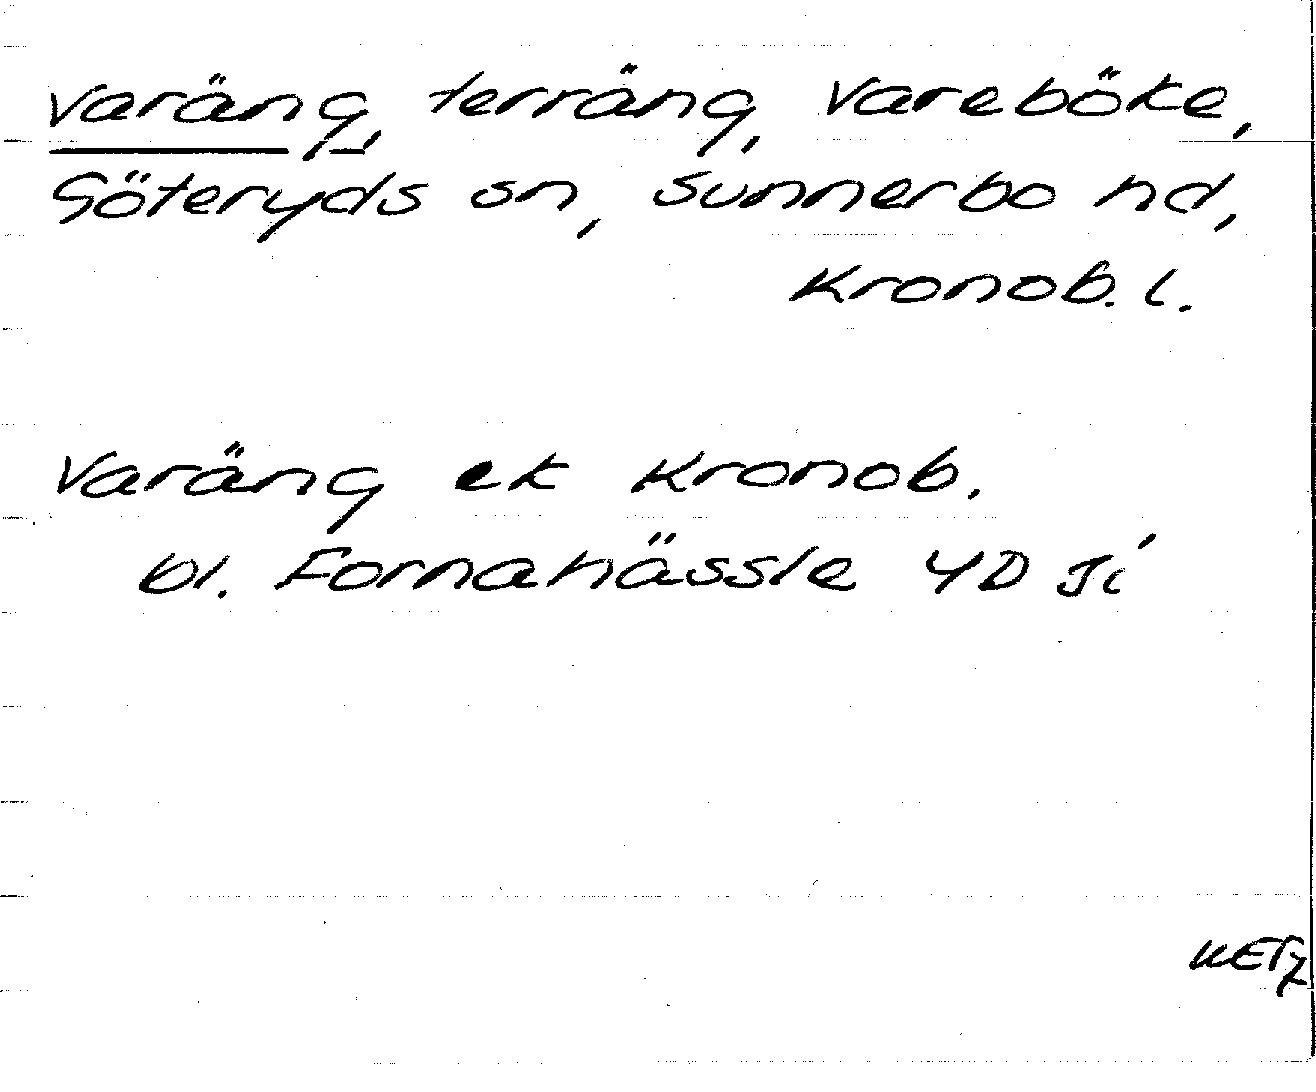 Varäng, terräng, Vareböke,
Göteryds sn, Sunnerbo hd,
Kronob. l.
Varäng ek Kronob.
bl. Fornahässle 4D